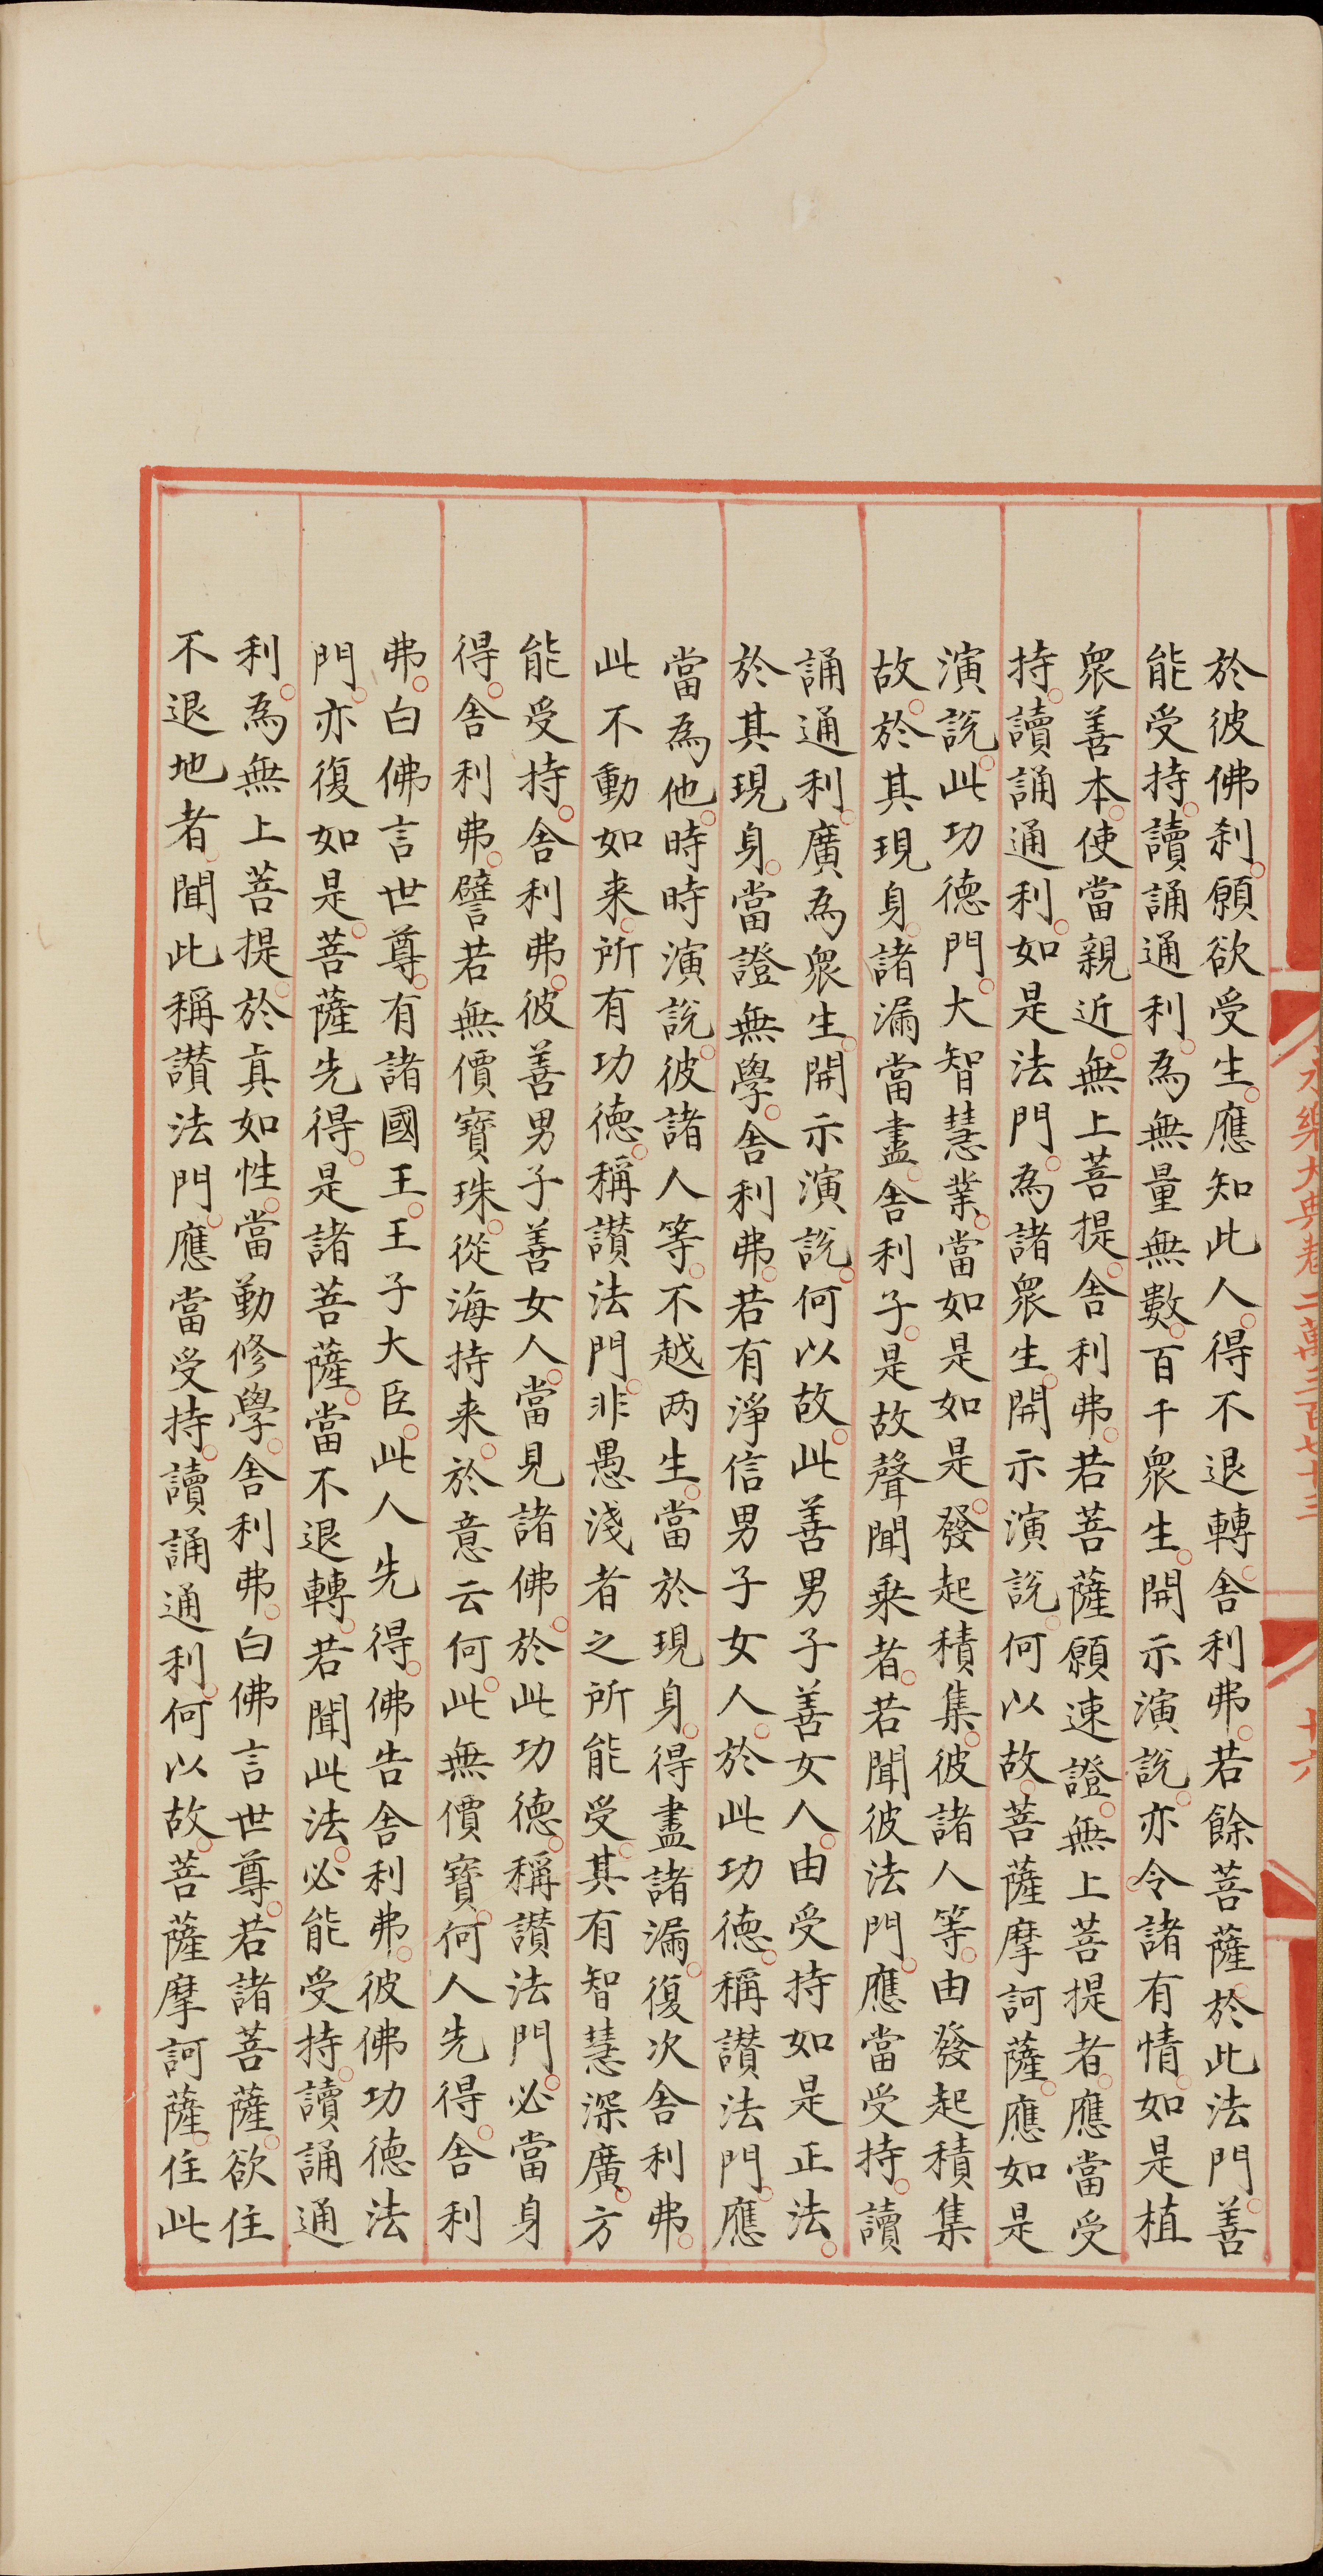 永樂大典卷二萬三百七十三
十六
於彼佛刹。願欲受生。應知此人。得不退轉。舍利弗。若餘菩薩。於此法門。善
能受持。讀誦通利。為無量無數。百千眾生。開示演說。亦令諸有情。如是植
眾善本。使當親近。無上菩提。舍利弗。若菩薩願速證。無上菩提者。應當受
持。讀誦通利。如是法門。為諸眾生。開示演說。何以故。菩薩摩訶薩。應如是
演說。此功德門。大智慧業。當如是如是。發起積集。彼諸人等。由發起積集
故。於其現身。諸漏當盡。舍利子。是故聲聞乘者。若聞彼法門。應當受持。讀
誦通利。廣為眾生。開示演說。何以故。此善男子善女人。由受持如是正法。
於其現身。當證無學。舍利弗。若有淨信男子女人。於此功德。稱讚法門。應
當為他。時時演說。彼諸人等。不越两生。當於現身。得盡諸漏。復次舍利弗。
此不動如来。所有功德。稱讚法門。非愚淺者之所能受。其有智慧深廣。方
能受持。舍利弗。彼善男子善女人。當見諸佛。於此功德。稱讚法門。必當身
得。舍利弗。譬若無價寶珠。從海持来。於意云何。此無價寶。何人先得。舍利
弗。白佛言世尊。有諸國王。王子大臣。此人先得。佛告舍利弗。彼佛功德法
門。亦復如是。菩薩先得。是諸菩薩。當不退轉。若聞此法。必能受持。讀誦通
利。為無上菩提。於真如性。當勤修學。舍利弗。白佛言世尊。若諸菩薩。欲住
不退地者。聞此稱讚法門。應當受持。讀誦通利。何以故。菩薩摩訶薩。住此